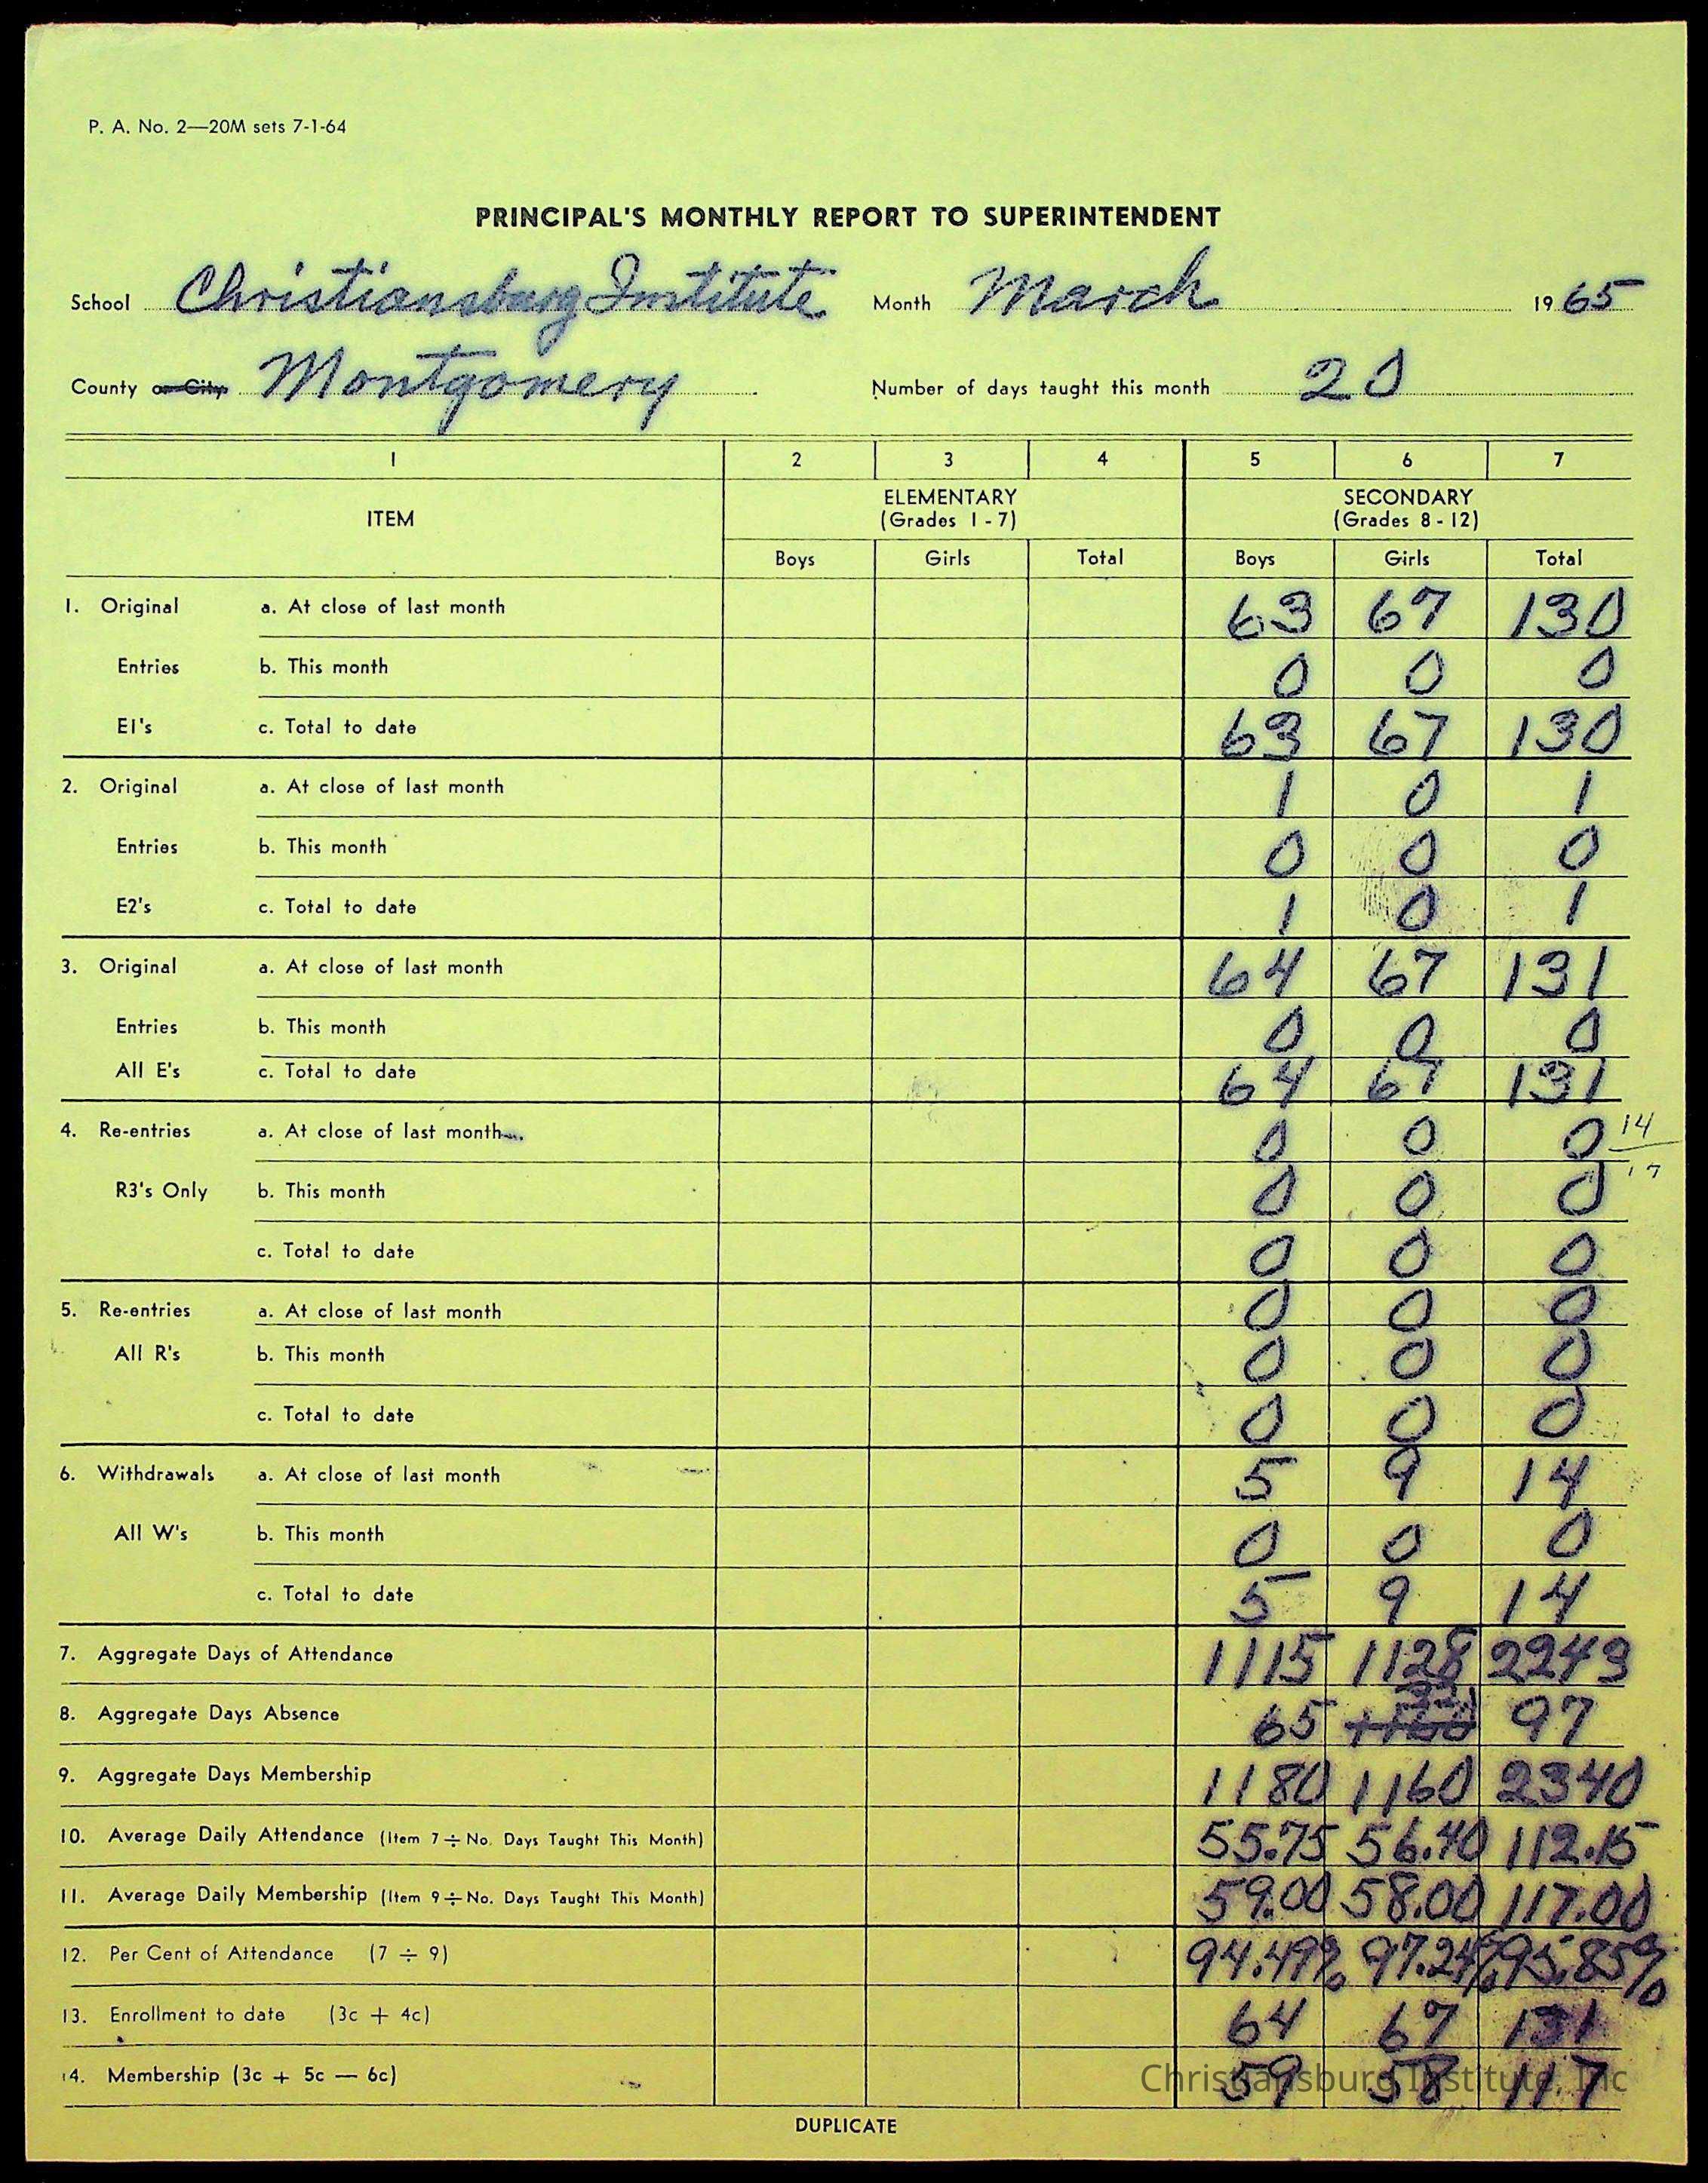 P. A. No. 2—20M sets 7-1-64
PRINCIPAL'S MONTHLY REPORT TO SUPERINTENDENT
School Christiansburg Institute Month March 1965
County or City Montgomery Number of days taught this month 20
1 2 3 4 5 6 7
ITEM ELEMENTARY (Grades 1 - 7) SECONDARY (Grades 8 - 12)
Boys Girls Total Boys Girls Total
1. Original a. At close of last month 63 67 130
Entries b. This month 0 0 0
E1's c. Total to date 63 67 130
2. Original a. At close of last month 1 0 1
Entries b. This month 0 0 0
E2's c. Total to date 1 0 1
3. Original a. At close of last month 64 67 131
Entries b. This month 0 0 0
All E's c. Total to date 64 67 131
4. Re-entries a. At close of last month 0 0 0 14
R3's Only b. This month 0 0 0 17
c. Total to date 0 0 0
5. Re-entries a. At close of last month 0 0 0
All R's b. This month 0 0 0
c. Total to date 0 0 0
6. Withdrawals a. At close of last month 5 9 14
All W's b. This month 0 0 0
c. Total to date 5 9 14
7. Aggregate Days of Attendance 1115 1128 2243
8. Aggregate Days Absence 65 32 97
9. Aggregate Days Membership 1180 1160 2340
10. Average Daily Attendance (Item 7 ÷ No. Days Taught This Month) 55.75 56.40 112.15
11. Average Daily Membership (Item 9 ÷ No. Days Taught This Month) 59.00 58.00 117.00
12. Per Cent of Attendance (7 ÷ 9) 94.49% 97.24% 95.85%
13. Enrollment to date (3c + 4c) 64 67 131
14. Membership (3c + 5c — 6c) 59 58 117
Christiansburg Institute, Inc
DUPLICATE